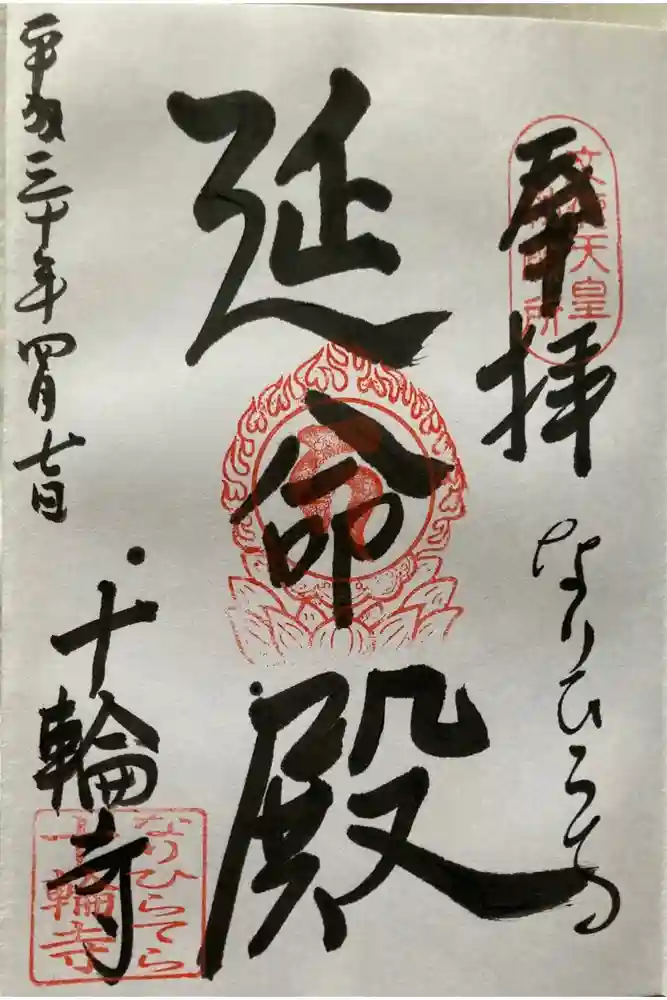 奉拝
なりひらてら
文徳天皇
延命殿
平成三十年四月七日
十輪寺
なりひらてら
十輪寺